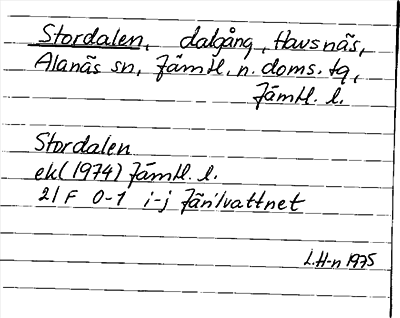 Stordalen, dalgång, Havsnäs,
Alanäs sn, Jämtl. n. doms. tg,
Jämtl. l.
Stordalen
ek (1974) Jämtl. l.
21 F 0-1 i-j Järilvattnet
L.H-n 1975